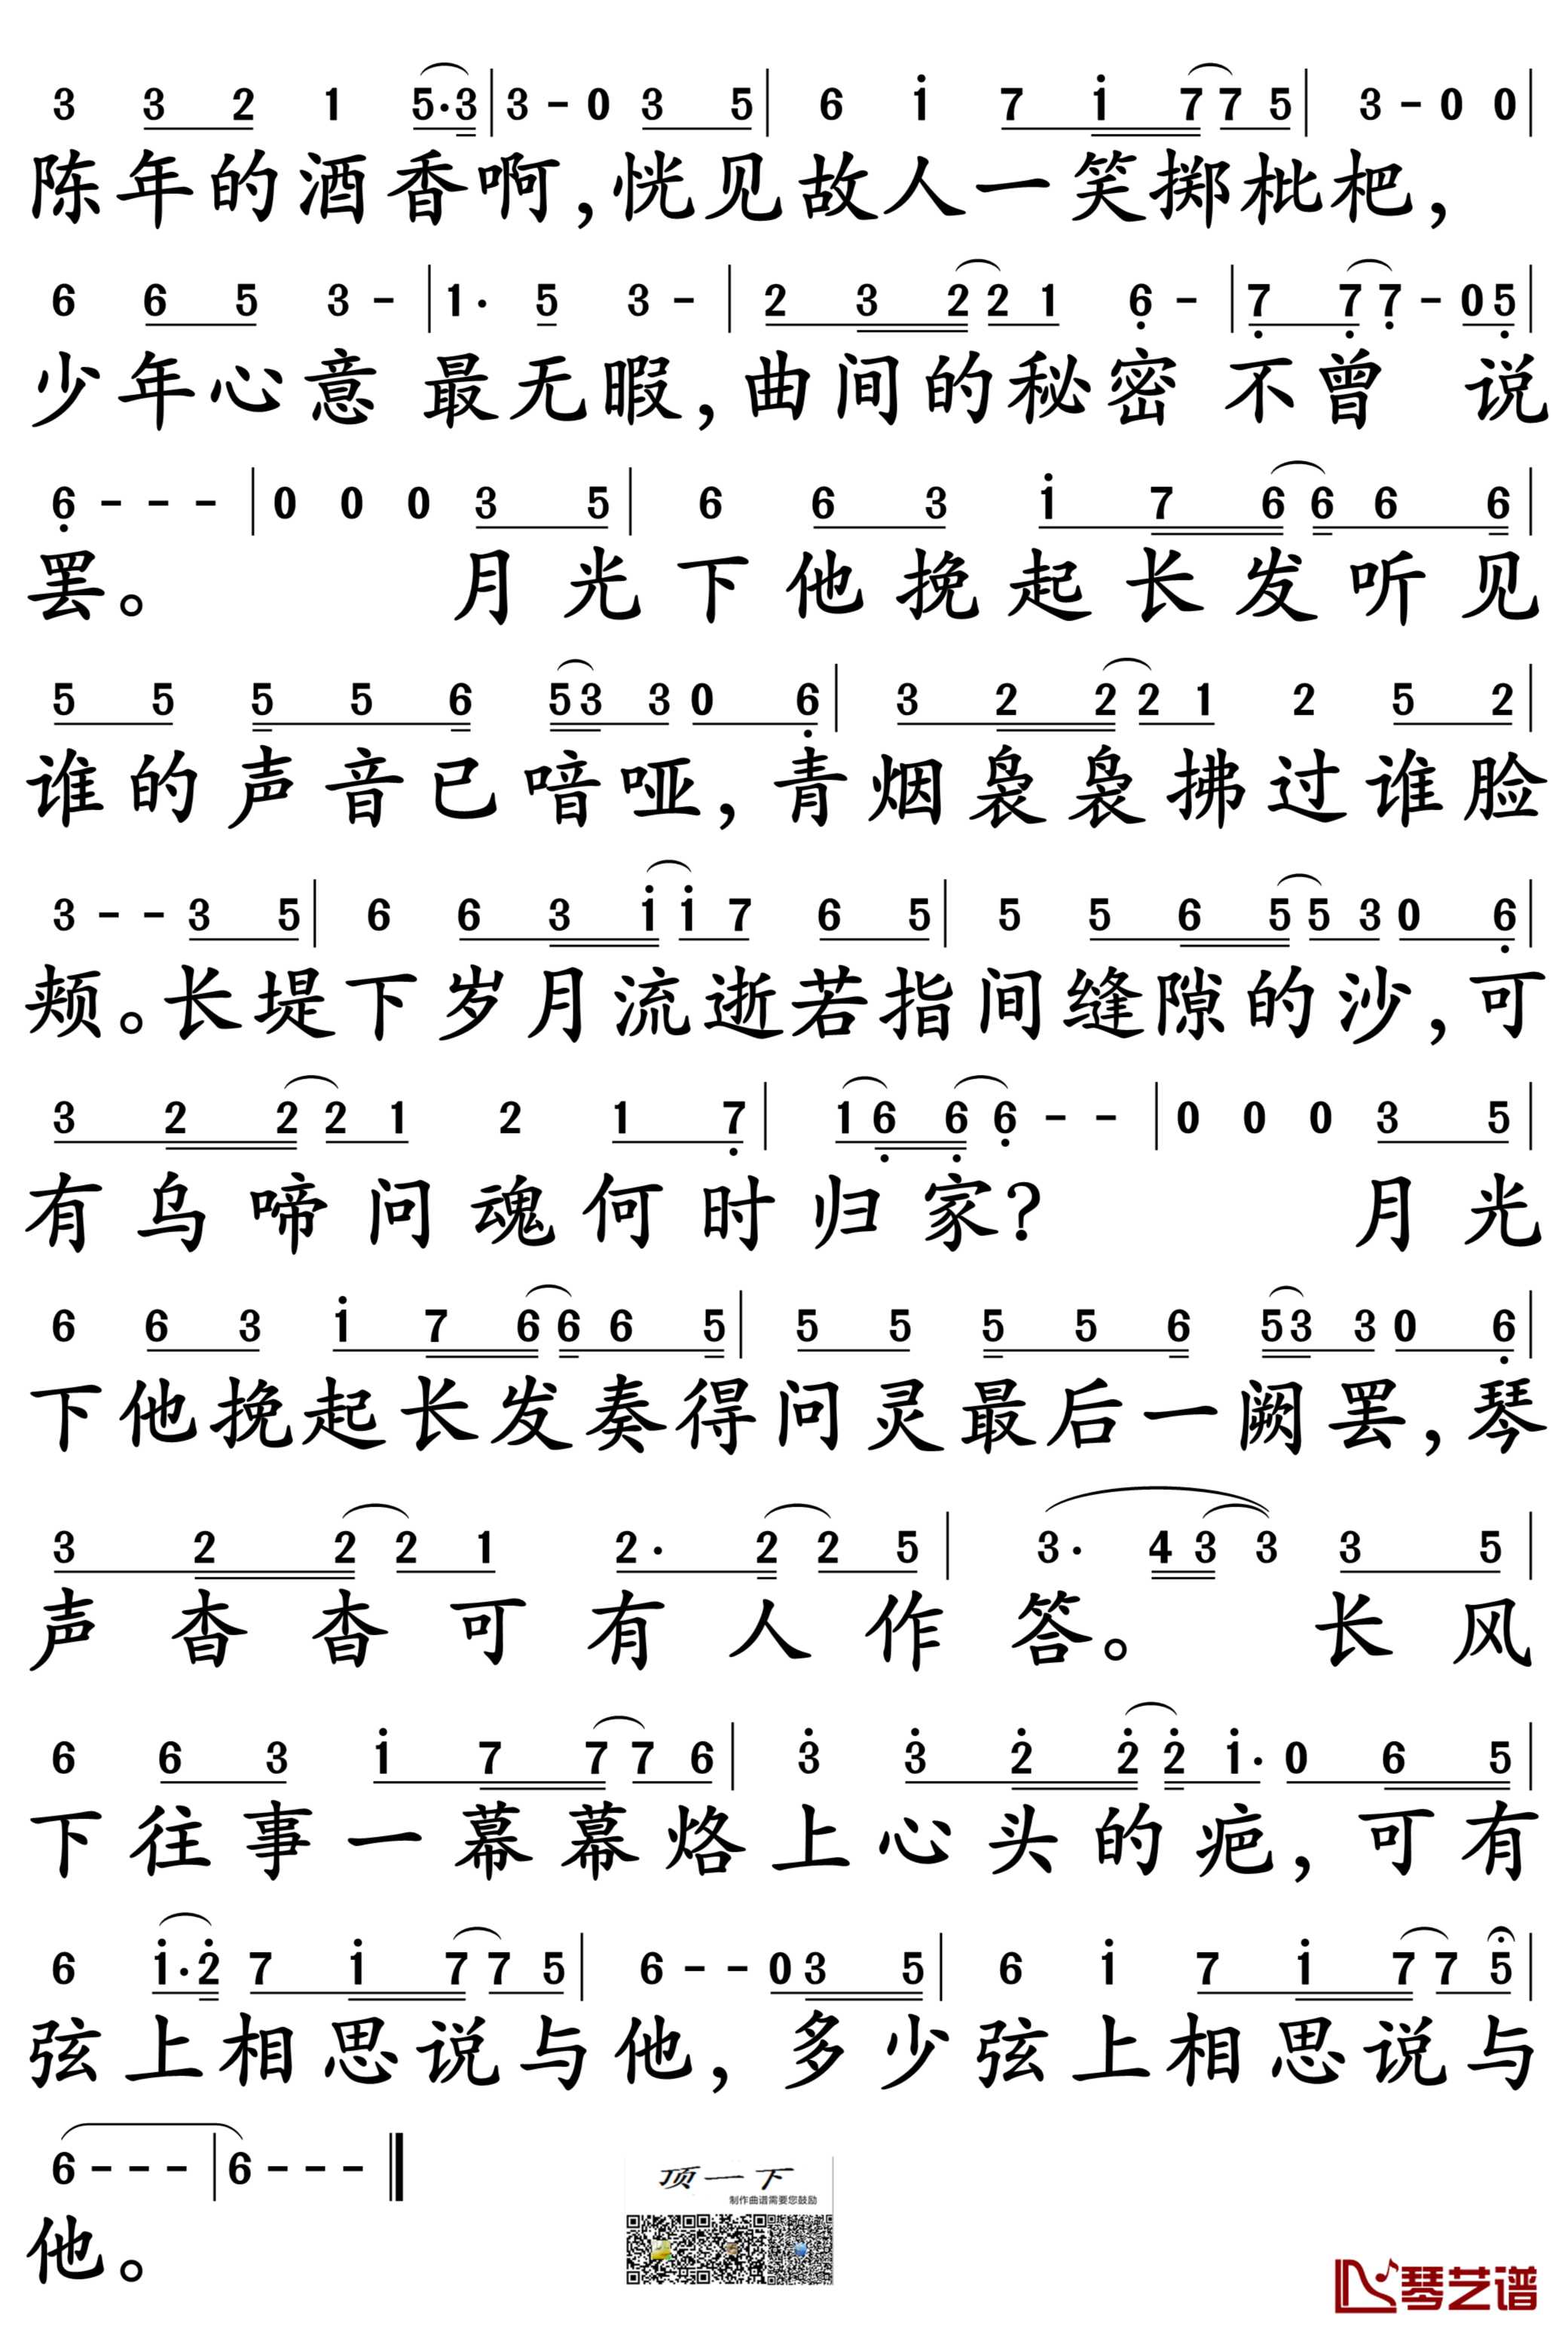 3 3 2 1 5·3 | 3 - 0 3 5 | 6 i 7 i 7 7 5 | 3 - 0 0 |
陈年的酒香啊,恍见故人一笑掷枇杷,
6 6 5 3 - | 1· 5 3 - | 2 3 2 2 1 6 - | 7 7 7 - 0 5 |
少年心意 最无暇,曲间的秘密 不曾 说
6 - - - | 0 0 0 3 5 | 6 6 3 i 7 6 6 6 6 |
罢。 月光下他挽起长发听见
5 5 5 5 6 5 3 3 0 6 | 3 2 2 2 1 2 5 2 |
谁的声音已喑哑,青烟袅袅拂过谁脸
3 - - 3 5 | 6 6 3 i i 7 6 5 | 5 5 6 5 5 3 0 6 |
颊。长堤下岁月流逝若指间缝隙的沙,可
3 2 2 2 1 2 1 7 | 1 6 6 6 - - | 0 0 0 3 5 |
有乌啼问魂何时归家? 月光
6 6 3 i 7 6 6 6 5 | 5 5 5 5 6 5 3 3 0 6 |
下他挽起长发奏得问灵最后一阙罢,琴
3 2 2 2 1 2· 2 2 5 | 3· 4 3 3 3 5 |
声杳杳可有人作答。 长风
6 6 3 i 7 7 7 6 | 3 3 2 2 2 i· 0 6 5 |
下往事一幕幕烙上心头的疤,可有
6 i·2 7 i 7 7 5 | 6 - - 0 3 5 | 6 i 7 i 7 7 5 |
弦上相思说与他,多少弦上相思说与
6 - - - | 6 - - - ‖
他。
顶一下
制作曲谱需要您鼓励
琴艺谱